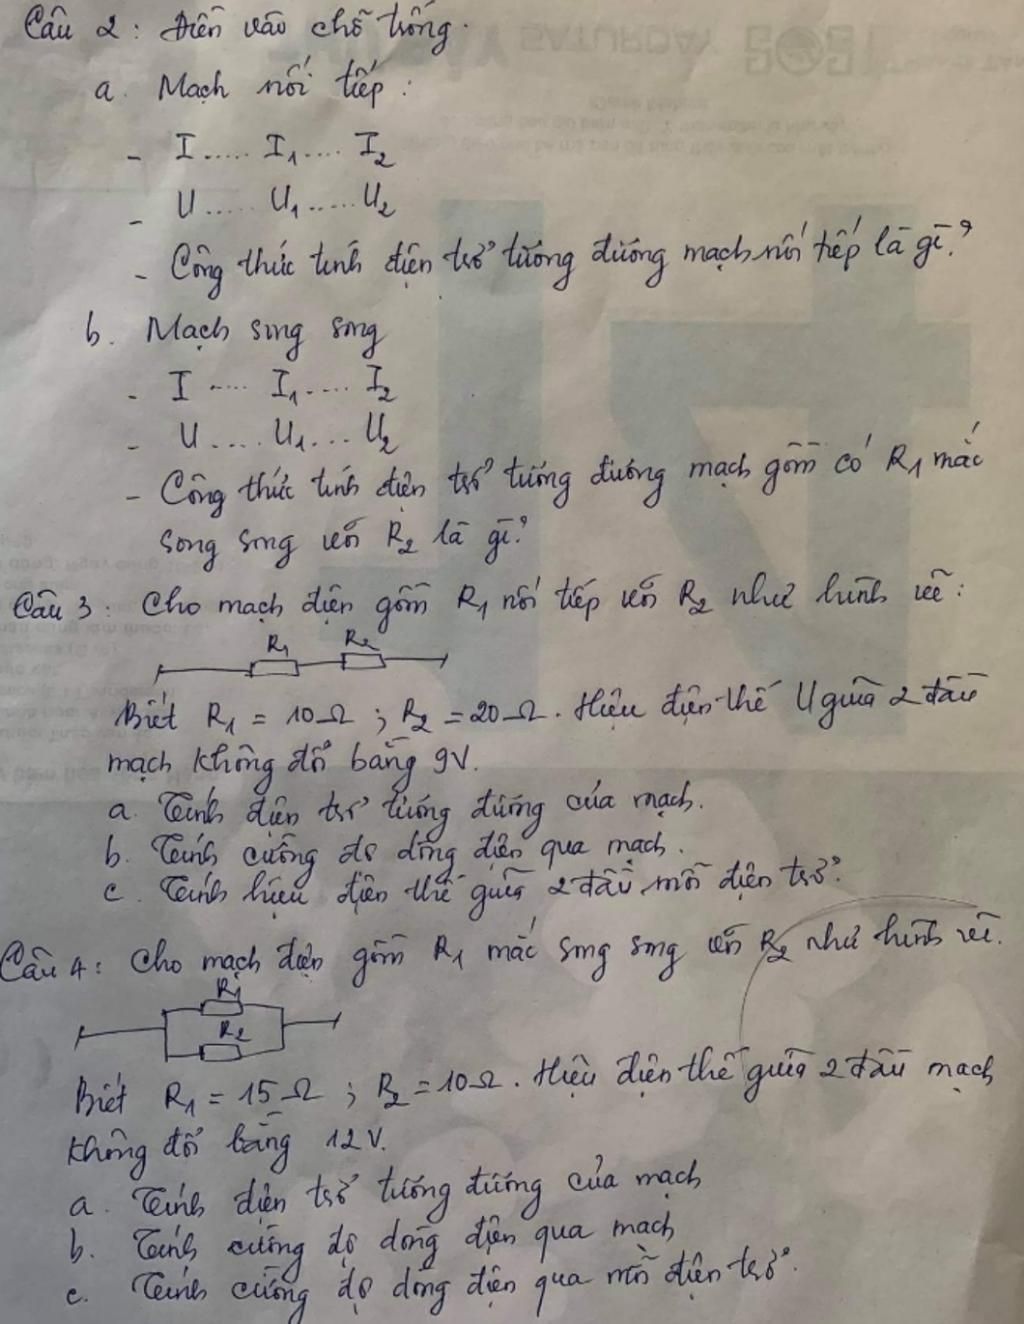 Câu 2: Điền vào chỗ trống.
a. Mạch nối tiếp:
- I ..... I₁ .... I₂
- U ..... U₁ ..... U₂
- Công thức tính điện trở tương đương mạch nối tiếp là gì?
b. Mạch song song
- I .... I₁ .... I₂
- U .... U₁ ... U₂
- Công thức tính điện trở tương đương mạch gồm có R₁ mắc
song song với R₂ là gì?
Câu 3: Cho mạch điện gồm R₁ nối tiếp với R₂ như hình vẽ:
R₁ R₂
Biết R₁ = 10Ω; R₂ = 20Ω. Hiệu điện thế U giữa 2 đầu
mạch không đổi bằng 9V.
a. Tính điện trở tương đương của mạch.
b. Tính cường độ dòng điện qua mạch.
c. Tính hiệu điện thế giữa 2 đầu mỗi điện trở.
Câu 4: Cho mạch điện gồm R₁ mắc song song với R₂ như hình vẽ.
R₁
R₂
Biết R₁ = 15Ω; R₂ = 10Ω. Hiệu điện thế giữa 2 đầu mạch
không đổi bằng 12V.
a. Tính điện trở tương đương của mạch
b. Tính cường độ dòng điện qua mạch
c. Tính cường độ dòng điện qua mỗi điện trở.